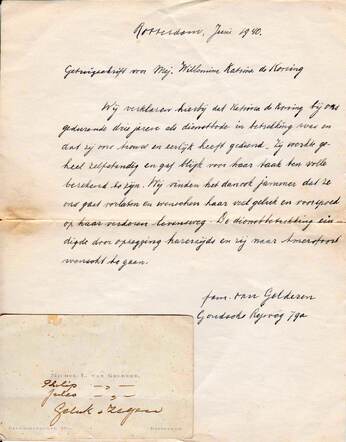 Rotterdam, Juni 1940.
Getuigschrift voor Mej. Willemina Katrina de Koning
Wij verklaren hierbij dat Katrina de Koning bij ons
gedurende drie jaren als dienstbode in betrekking was en
dat zij ons trouw en eerlijk heeft gediend. Zij werkte ge-
heel zelfstandig en gaf blijk voor haar taak ten volle
berekend te zijn. Wij vinden het dan ook jammer dat ze
ons gaat verlaten en wenschen haar veel geluk en voorspoed
op haar verderen levensweg. De dienstbetrekking ein-
digde door opzegging harerzijds en zij naar Amersfoort
wenscht te gaan.
fam. van Gelderen
Goudsche Rijweg 79a
Michel L. van Gelderen
Philip — „ —
Jules — „ —
Geluk & Zegen